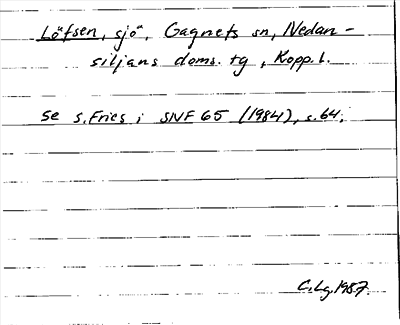 Löfsen, sjö, Gagnefs sn, Nedan-
siljans doms. tg, Kopp. l.
se S. Fries i SNF 65 (1984), s. 64.
C. Lg. 1987.